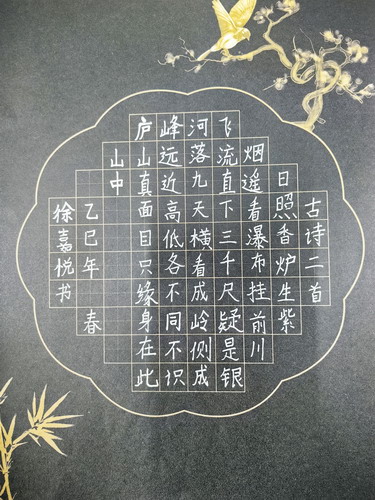 古诗二首
日照香炉生紫
烟遥看瀑布挂前川
飞流直下三千尺疑是银
河落九天横看成岭侧成
峰远近高低各不同不识
庐山真面目只缘身在此
山中
乙巳年春
徐嘉悦书